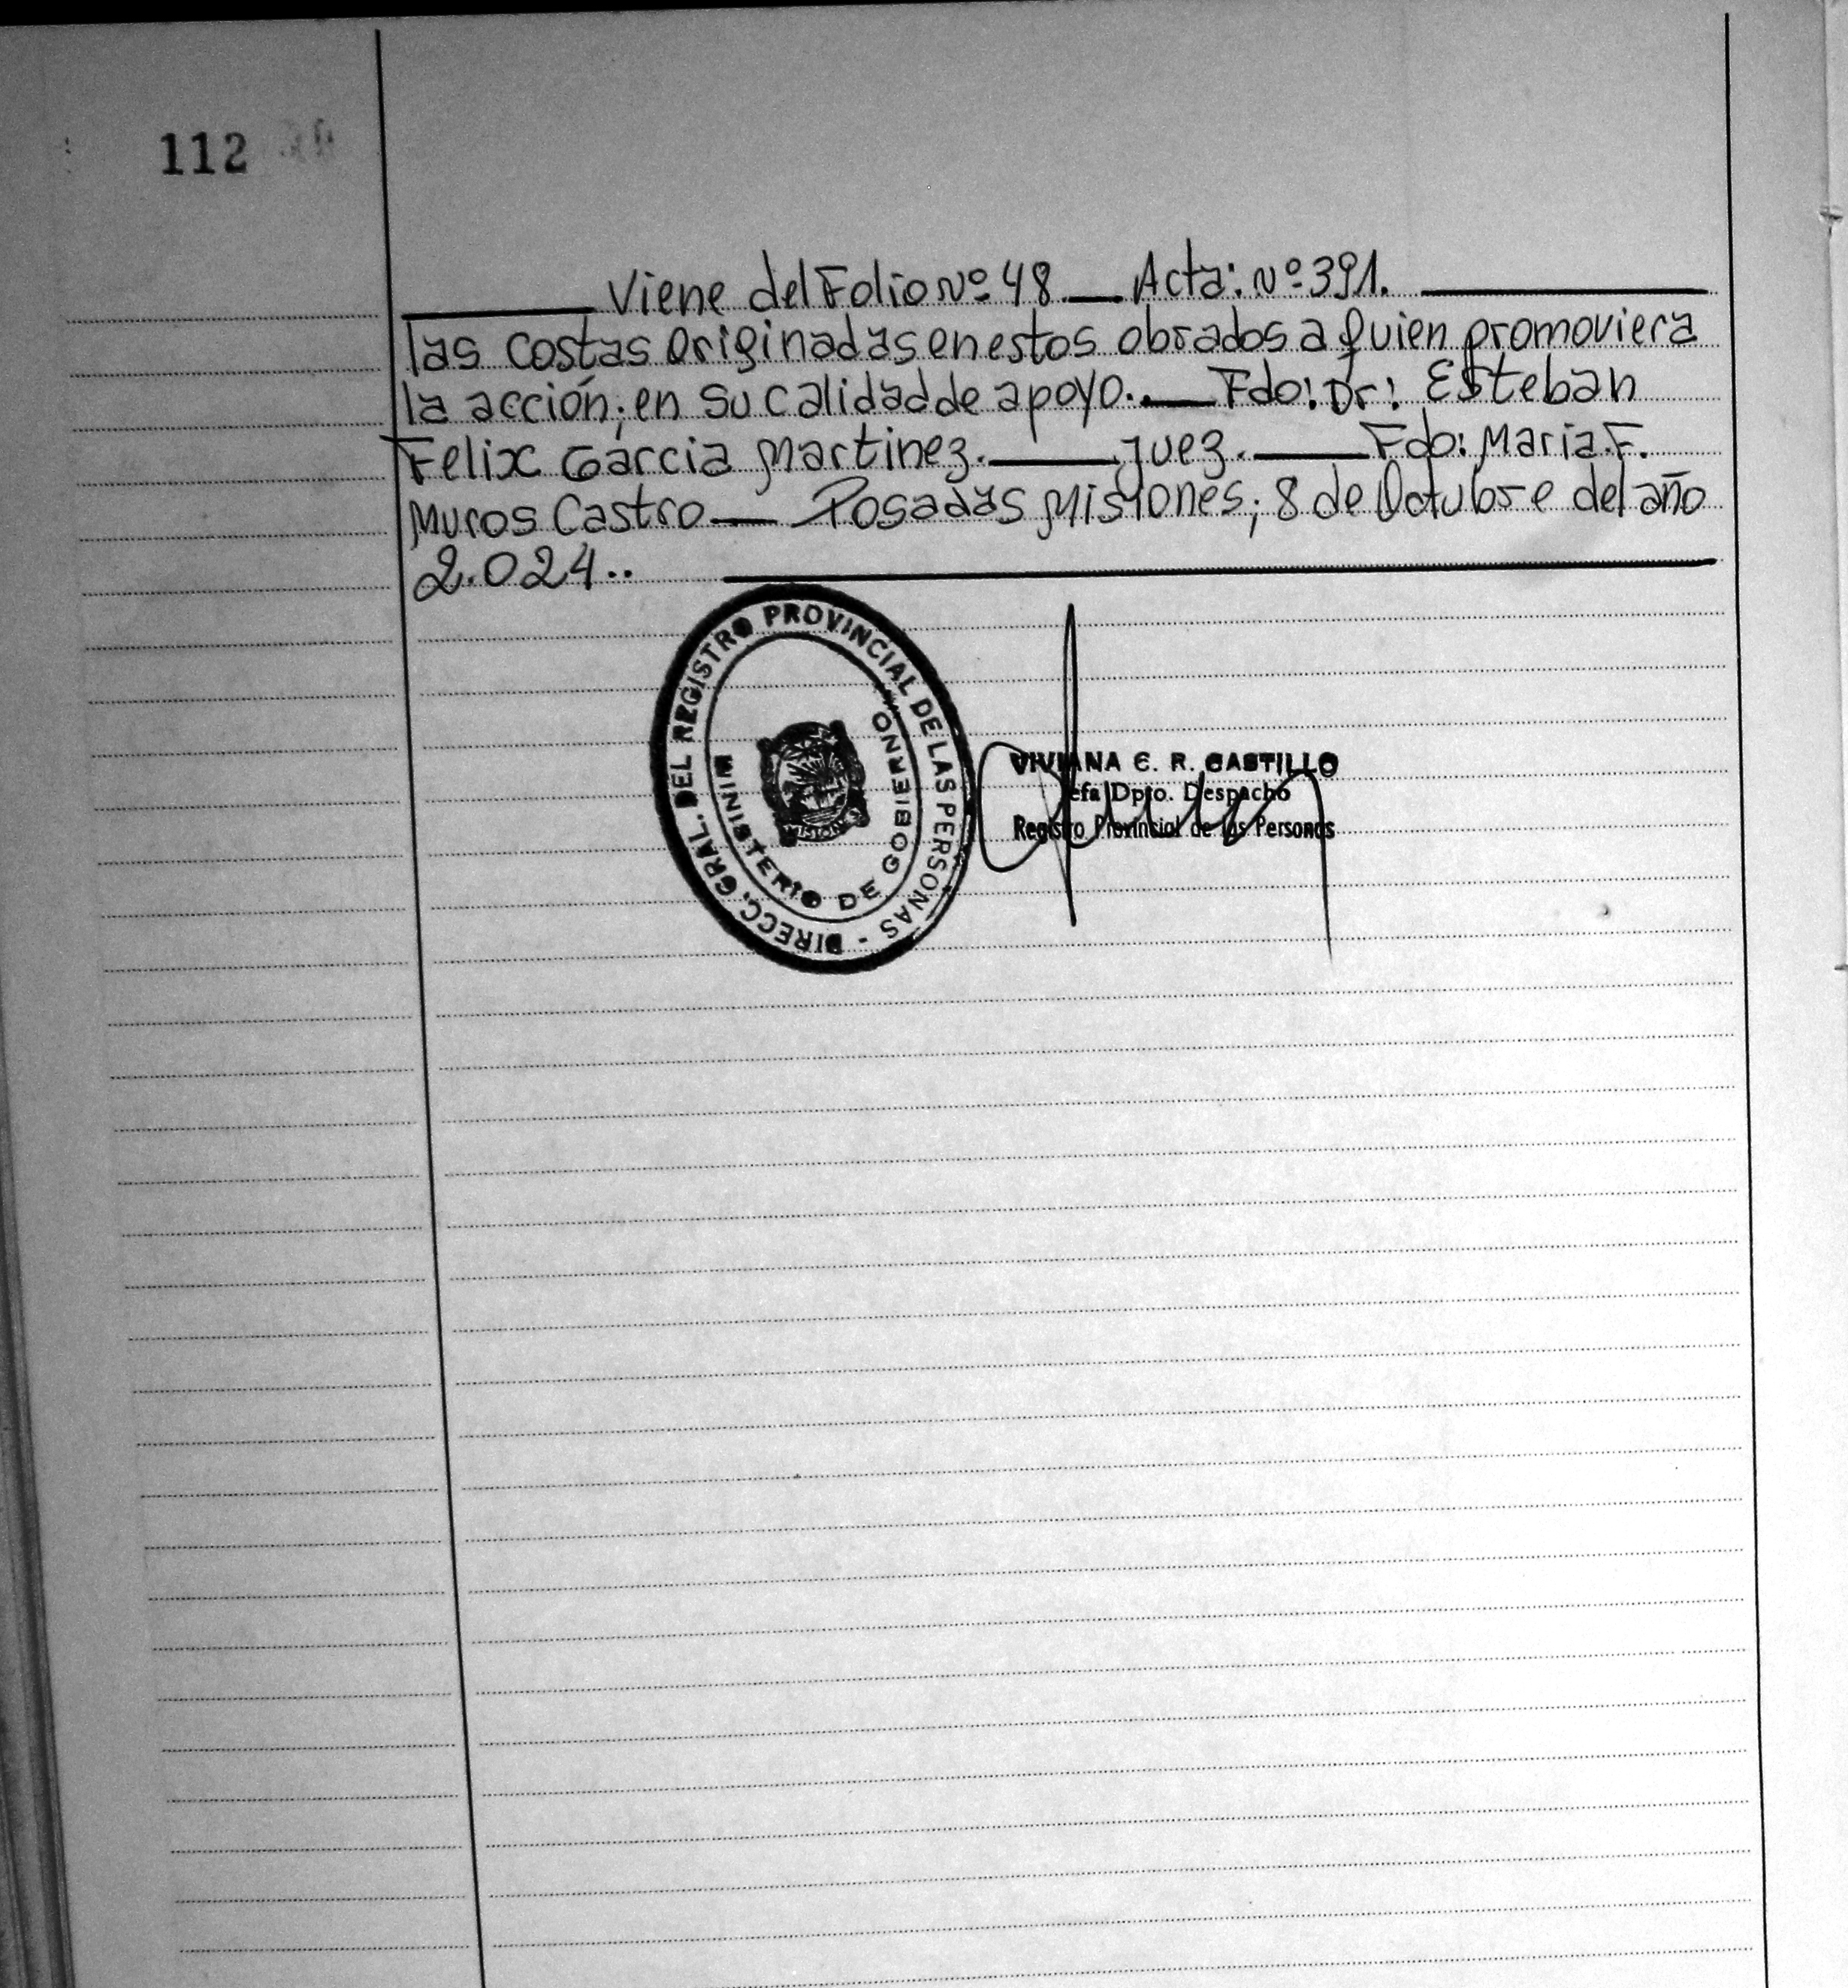 112
Viene del Folio Nº 48 — Acta: Nº 391.
las costas originadas en estos obrados a quien promoviera
la acción; en su calidad de apoyo. — Fdo: Dr: Esteban
Felix García Martinez. — Juez. — Fdo: María F.
Muros Castro — Posadas Misiones; 8 de Octubre del año
2.024..
DIRECC. GRAL. DEL REGISTRO PROVINCIAL DE LAS PERSONAS -
MINISTERIO DE GOBIERNO
MISIONES
VIVIANA E. R. CASTILLO
Jefa Dpto. Despacho
Registro Provincial de las Personas